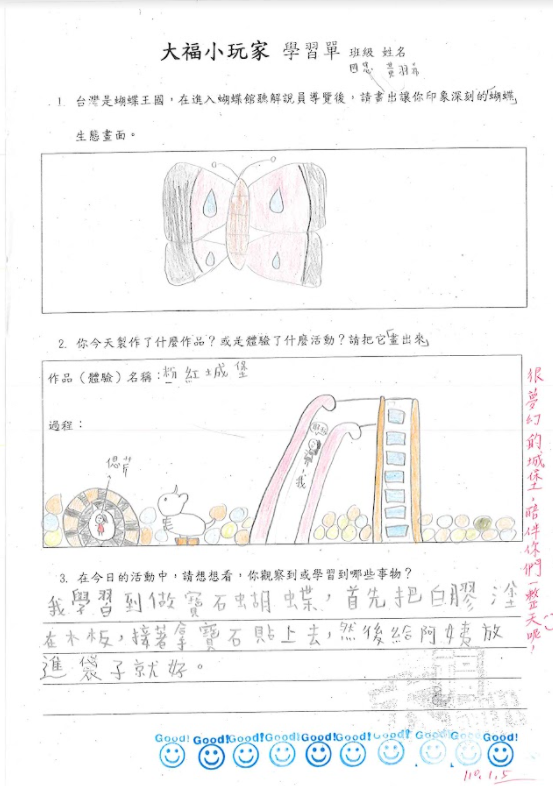 大福小玩家 學習單 班級 姓名
1. 台灣是蝴蝶王國，在進入蝴蝶館聽解說員導覽後，請畫出讓你印象深刻的「蝴蝶」
生態畫面。
2. 你今天製作了什麼作品？或是體驗了什麼活動？請把它「畫出來」
作品（體驗）名稱：粉紅城堡
過程：
我
很夢幻的城堡，陪伴你們一整天呢！
3. 在今日的活動中，請想想看，你觀察到或學習到哪些事物？
我學習到做寶石蝴蝶，首先把白膠塗
在木板，接著拿寶石貼上去，然後給阿姨放
進袋子就好。
Good! Good! Good! Good! Good! Good! Good! Good! Good! Good!
110.1.5